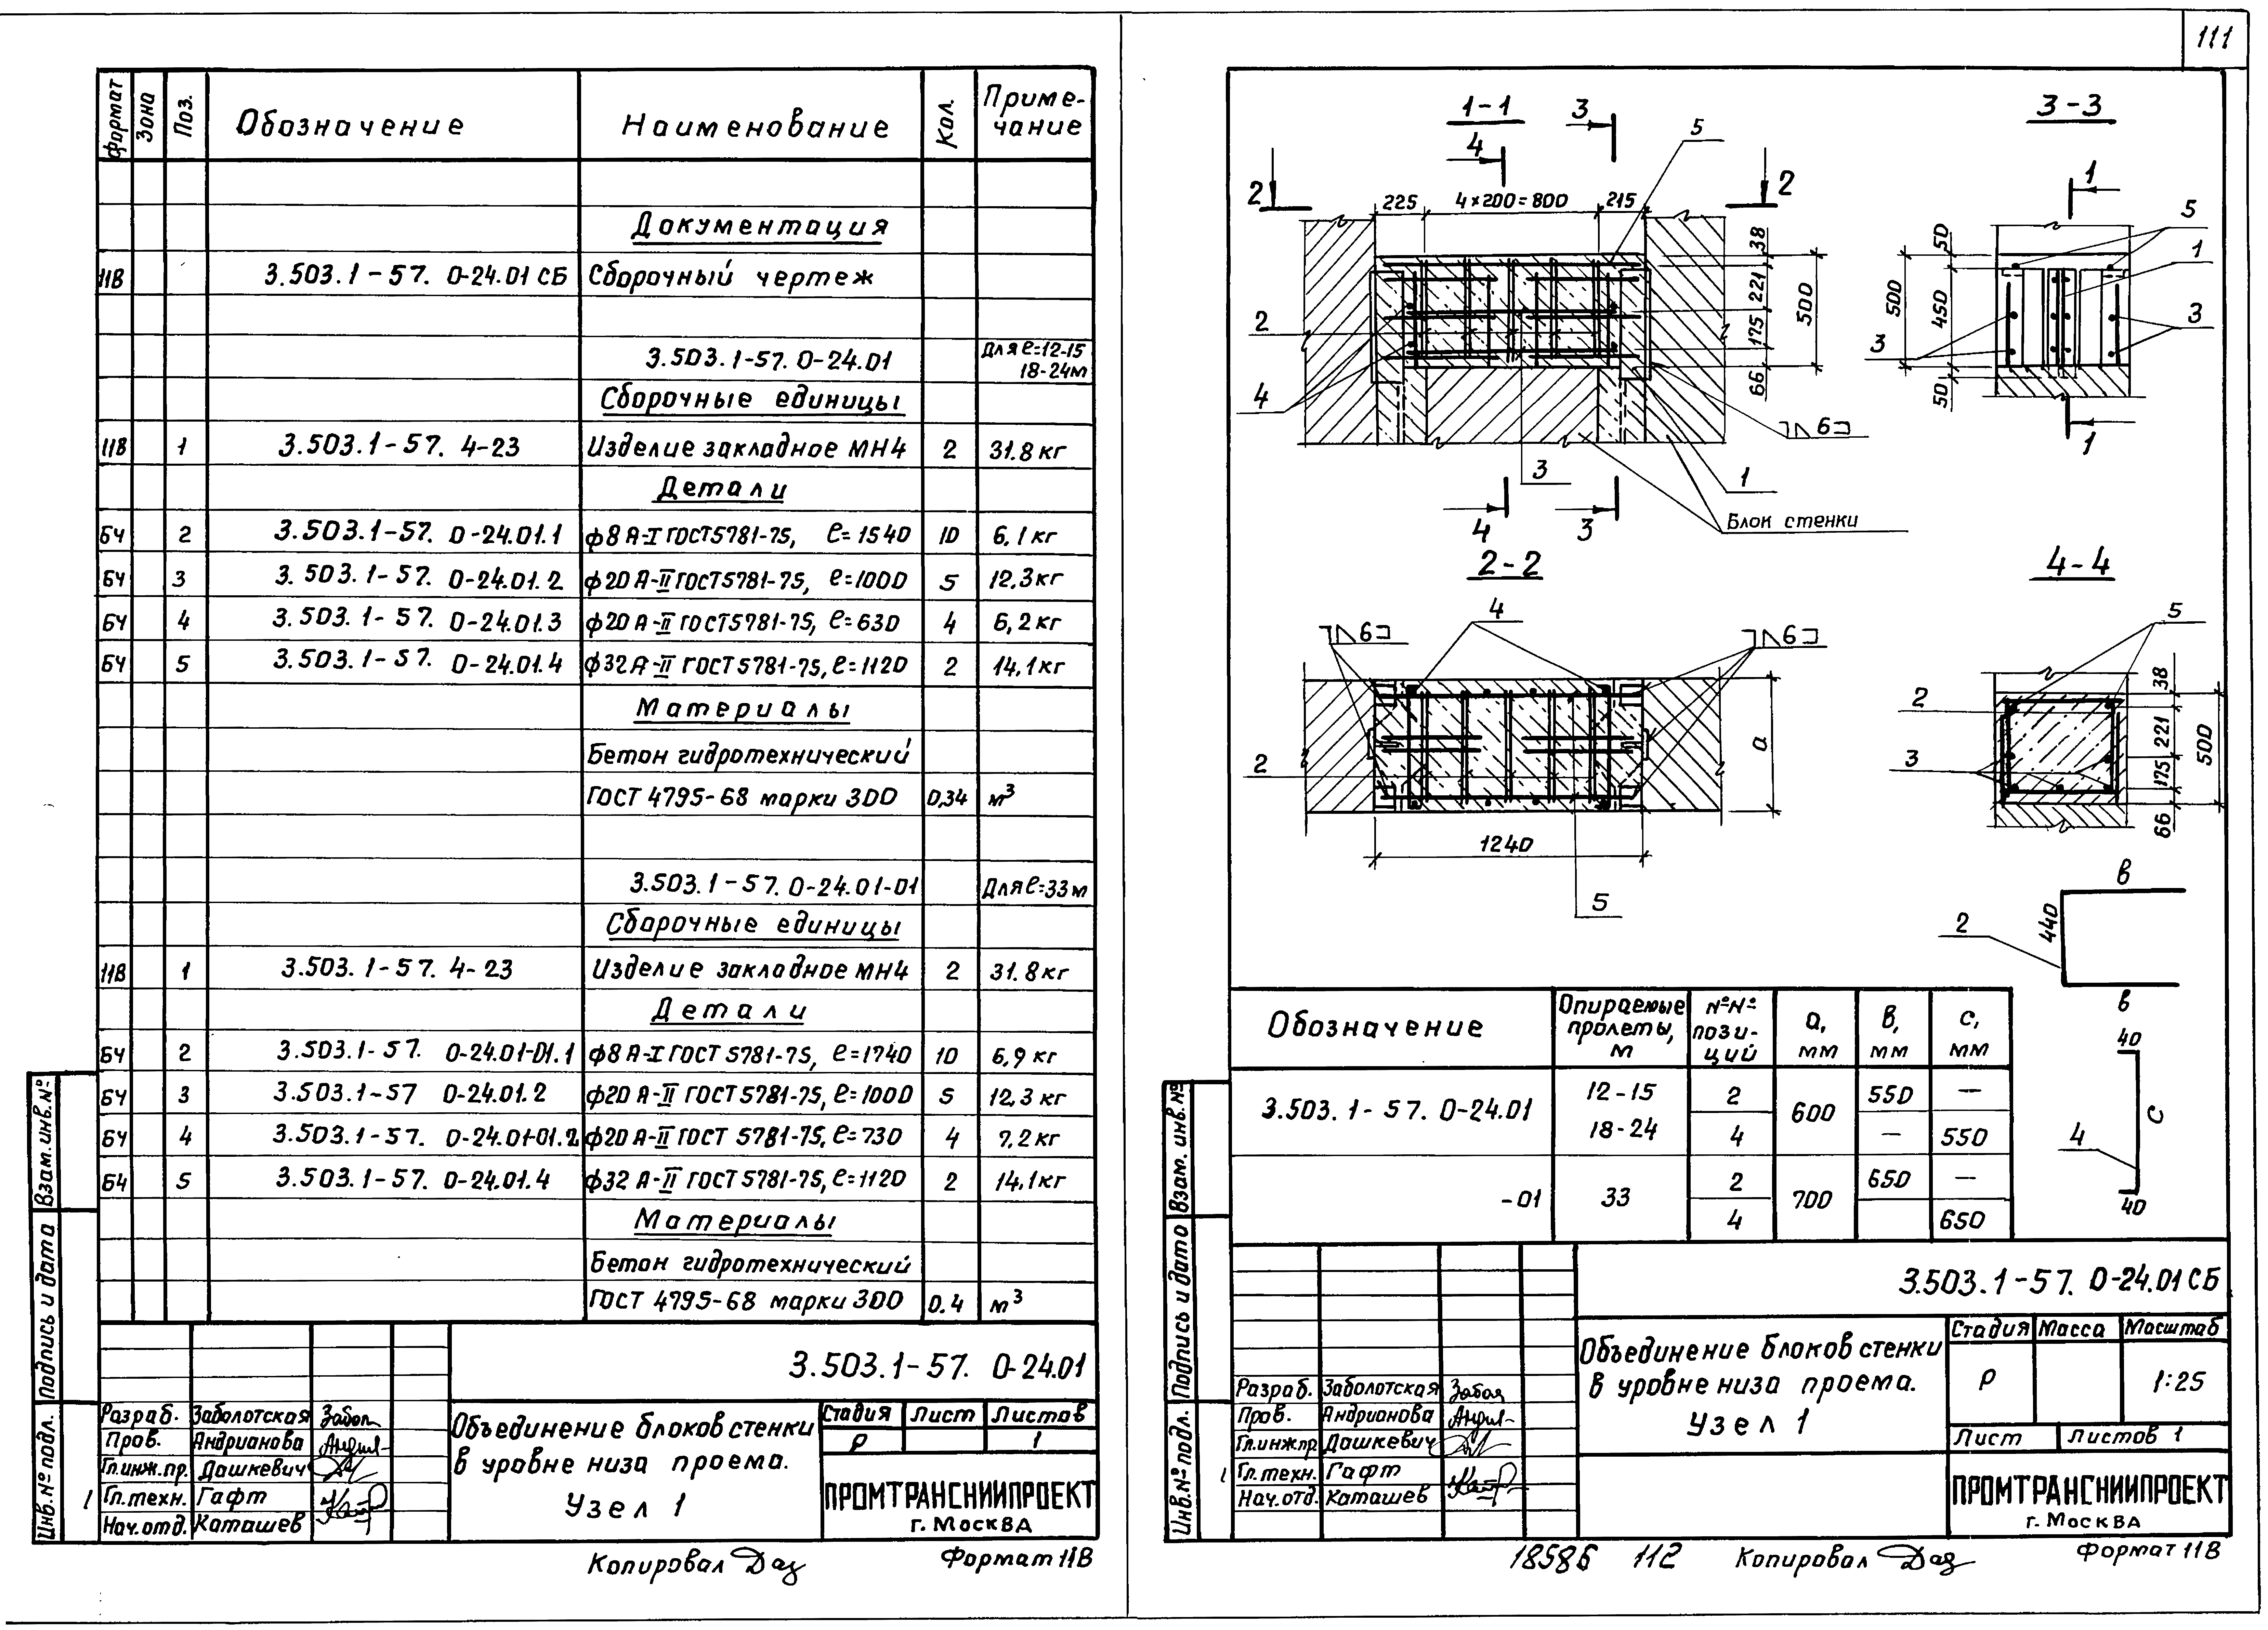 111
Формат
Зона
Поз.
Обозначение
Наименование
Кол.
Приме-
чание
Документация
11В 3.503.1-57. 0-24.01 СБ Сборочный чертеж
3.503.1-57. 0-24.01 Для ℓ=12-15
18-24м
Сборочные единицы
11В 1 3.503.1-57. 4-23 Изделие закладное МН4 2 31.8 кг
Детали
БЧ 2 3.503.1-57. 0-24.01.1 ф8 А-I ГОСТ 5781-75, ℓ=1540 10 6,1 кг
БЧ 3 3.503.1-57. 0-24.01.2 ф20 А-II ГОСТ 5781-75, ℓ=1000 5 12,3 кг
БЧ 4 3.503.1-57. 0-24.01.3 ф20 А-II ГОСТ 5781-75, ℓ=630 4 6,2 кг
БЧ 5 3.503.1-57. 0-24.01.4 ф32 А-II ГОСТ 5781-75, ℓ=1120 2 14,1 кг
Материалы
Бетон гидротехнический
ГОСТ 4795-68 марки 300 0,34 м³
3.503.1-57. 0-24.01-01 Для ℓ=33м
Сборочные единицы
11В 1 3.503.1-57. 4-23 Изделие закладное МН4 2 31.8 кг
Детали
БЧ 2 3.503.1-57. 0-24.01-01.1 ф8 А-I ГОСТ 5781-75, ℓ=1740 10 6,9 кг
БЧ 3 3.503.1-57 0-24.01.2 ф20 А-II ГОСТ 5781-75, ℓ=1000 5 12,3 кг
БЧ 4 3.503.1-57. 0-24.01-01.2 ф20 А-II ГОСТ 5781-75, ℓ=730 4 7,2 кг
БЧ 5 3.503.1-57. 0-24.01.4 ф32 А-II ГОСТ 5781-75, ℓ=1120 2 14,1 кг
Материалы
Бетон гидротехнический
ГОСТ 4795-68 марки 300 0.4 м³
Взам. инв.№
Подпись и дата
Инв.№ подл.
1
3.503.1-57. 0-24.01
Разраб. Заболотская
Пров. Андрианова
Гл.инж.пр. Дашкевич
Гл.техн. Гафт
Нач.отд. Каташев
Объединение блоков стенки
в уровне низа проема.
Узел 1
Стадия Лист Листов
Р 1
ПРОМТРАНСНИИПРОЕКТ
г. Москва
Копировал
Формат 11В
1-1
3
4
5
2 2
225 4×200=800 215
38
221
175
66
500
2
4
6
3
1
4 3
Блок стенки
3-3
1
5
1
50
450
500
50
3 3
1
2-2
6 4 6
2
а
1240
5
4-4
5
2
3
38
221
175
66
500
в
440
2
в
40
с
4
40
Обозначение
Опираемые
пролеты,
м
№№
пози-
ций
а,
мм
в,
мм
с,
мм
3.503.1-57. 0-24.01 12-15 2 600 550 —
18-24 4 — 550
-01 33 2 700 650 —
4 650
Взам. инв.№
Подпись и дата
Инв.№ подл.
1
3.503.1-57. 0-24.01 СБ
Разраб. Заболотская
Пров. Андрианова
Гл.инж.пр Дашкевич
Гл.техн. Гафт
Нач.отд. Каташев
Объединение блоков стенки
в уровне низа проема.
Узел 1
Стадия Масса Масштаб
Р 1:25
Лист Листов 1
ПРОМТРАНСНИИПРОЕКТ
г. Москва
112 Копировал
Формат 11В